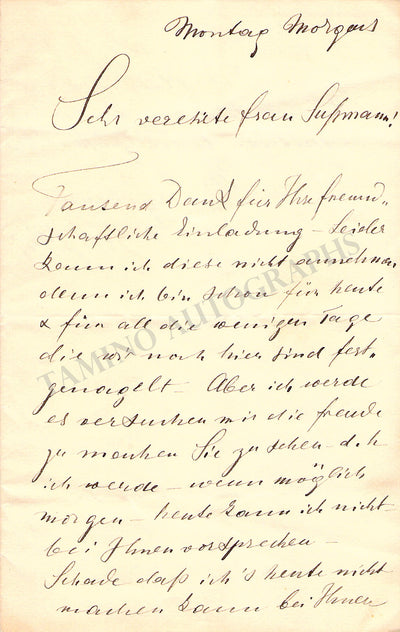 Montag Morgens
Sehr verehrte Frau Sußmann!
Tausend Dank für Ihre freund-
schaftliche Einladung – Leider
kann ich diese nicht annehmen
denn ich bin schon für heute
& für all die wenigen Tage
die wir noch hier sind fest-
genagelt – Aber ich werde
es versuchen mir die Freude
zu machen Sie zu sehen – d.h
ich werde – wenn möglich
morgen – heute kann ich nicht –
bei Ihnen vorsprechen –
Schade daß ich's heute nicht
machen kann bei Ihnen
TAMINO AUTOGRAPHS